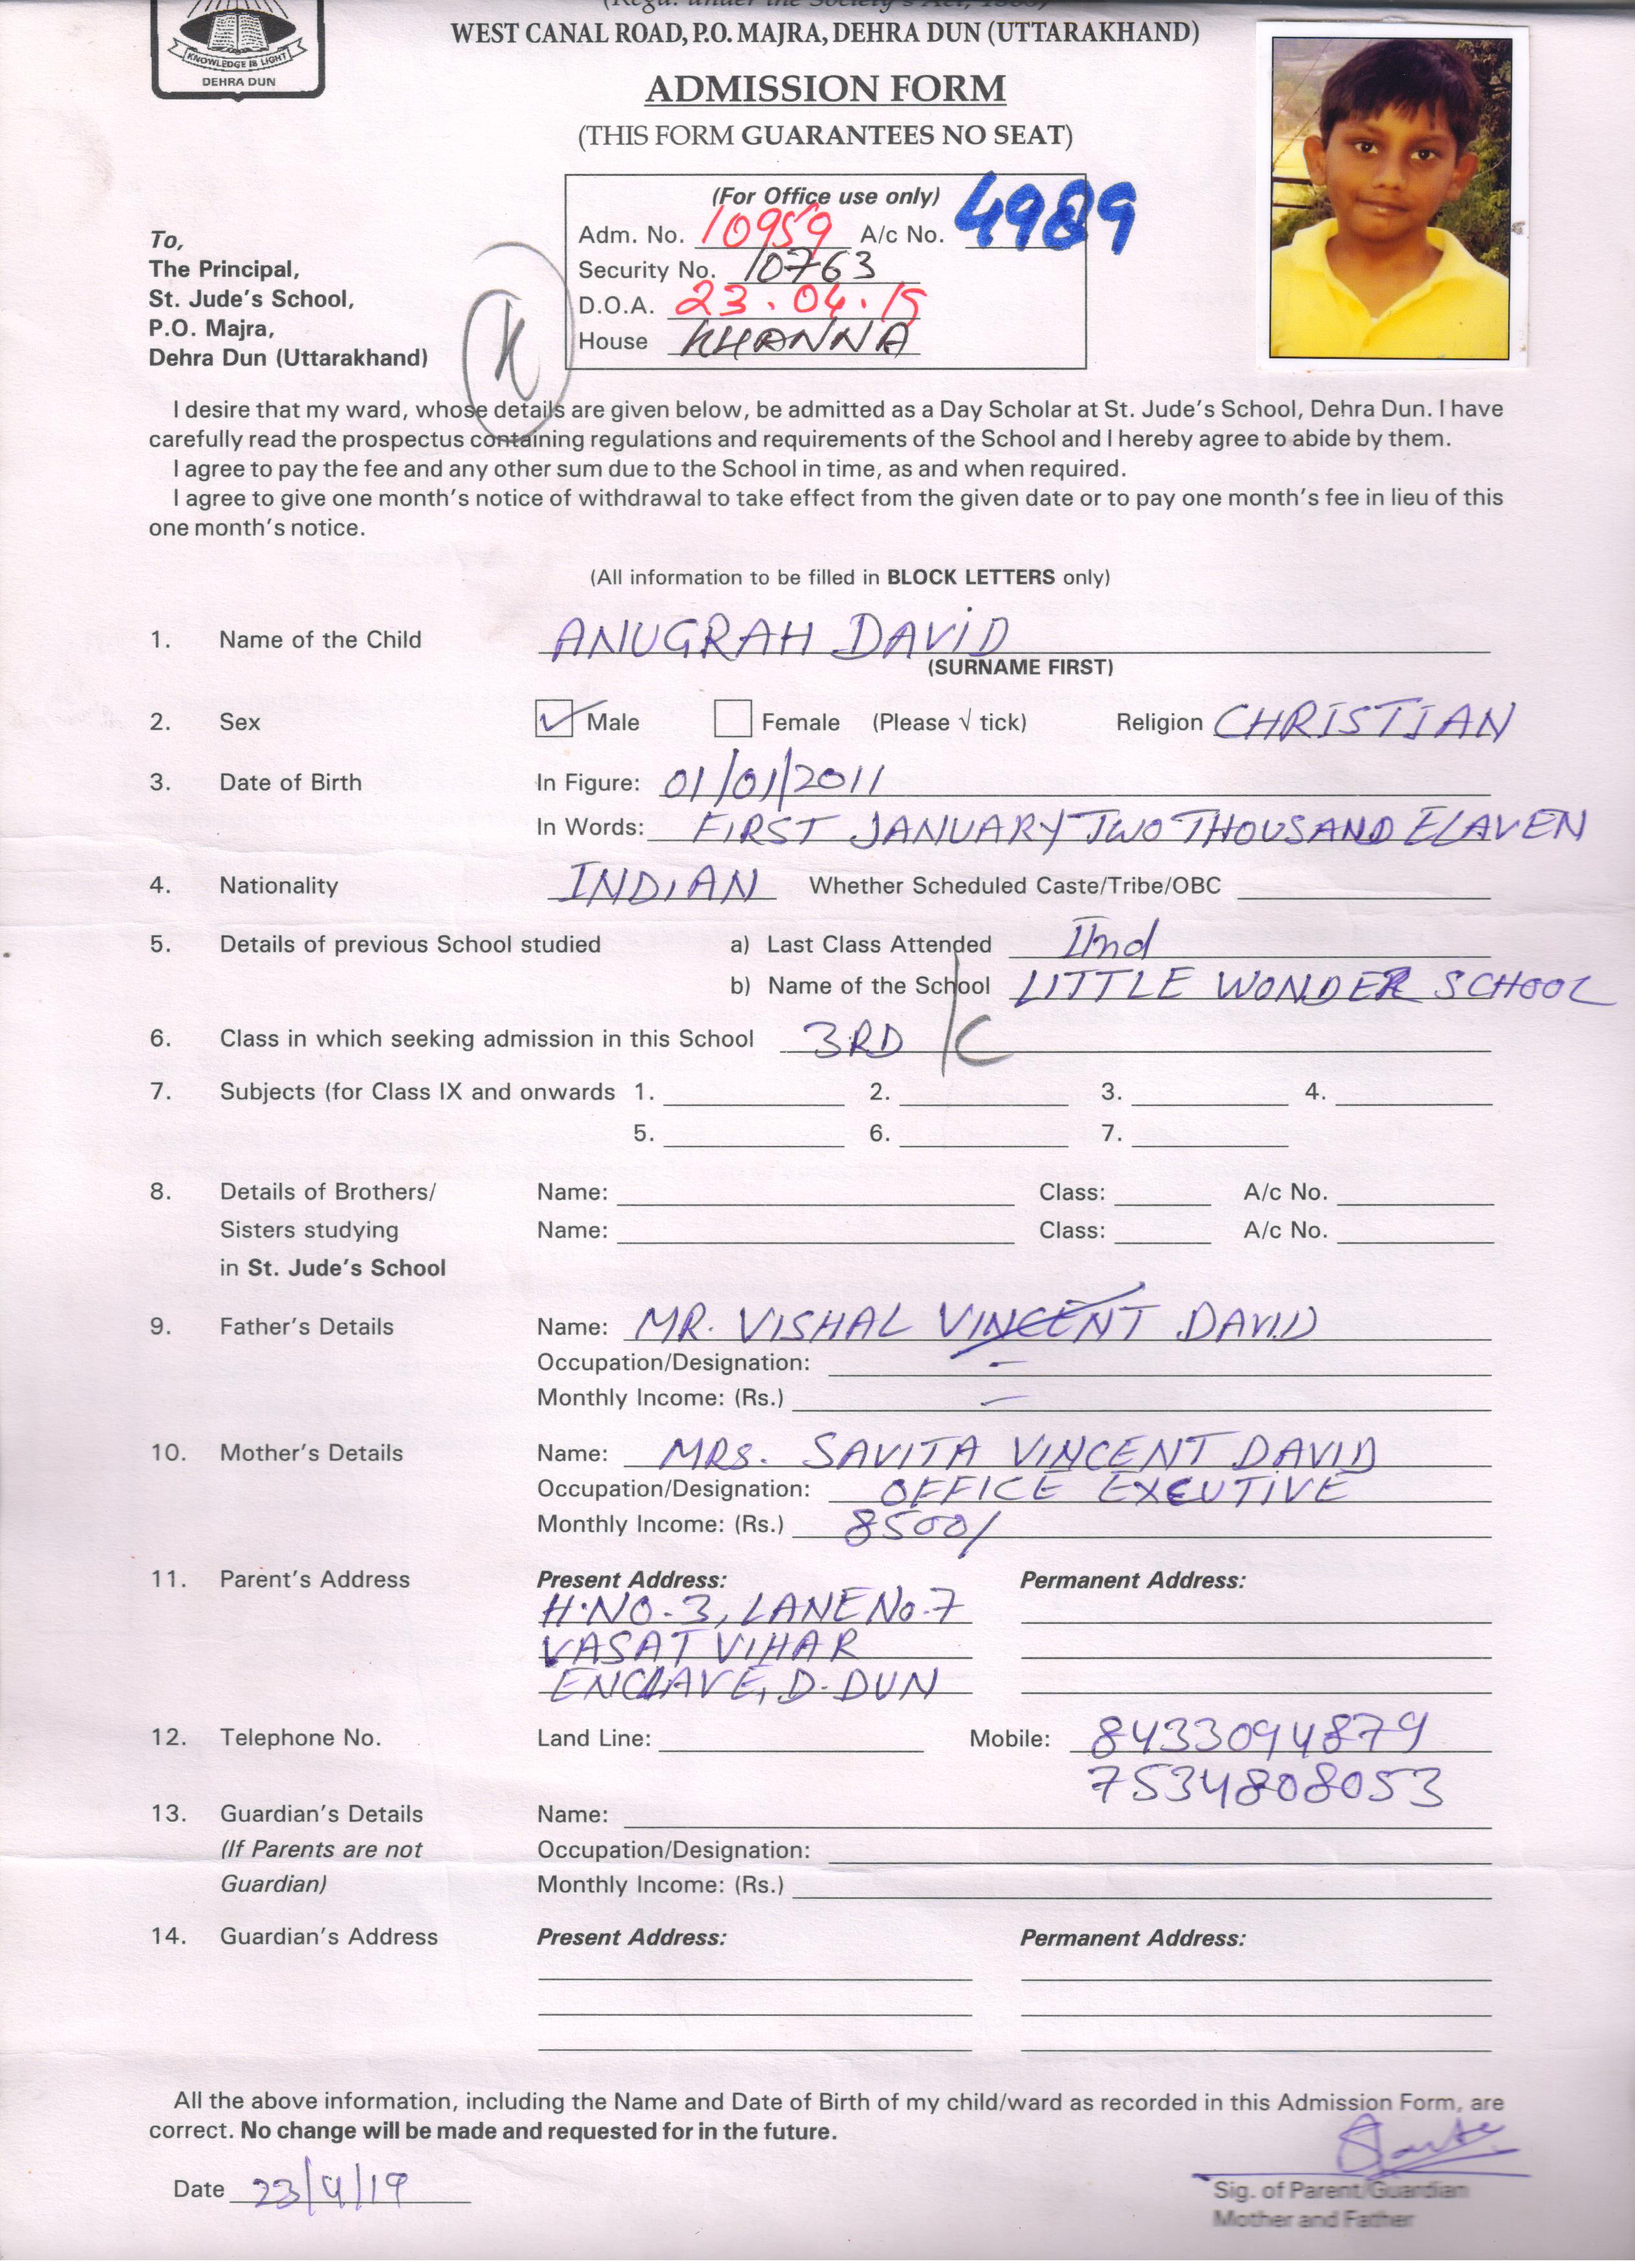 (Regd. under the Society's Act, 1860)
WEST CANAL ROAD, P.O. MAJRA, DEHRA DUN (UTTARAKHAND)
KNOWLEDGE IS LIGHT
DEHRA DUN
ADMISSION FORM
(THIS FORM GUARANTEES NO SEAT)
(For Office use only)
Adm. No. 10959 A/c No. 4989
Security No. 10763
D.O.A. 23.04.19
House KHANNA
To,
The Principal,
St. Jude's School,
P.O. Majra,
Dehra Dun (Uttarakhand)
K
I desire that my ward, whose details are given below, be admitted as a Day Scholar at St. Jude's School, Dehra Dun. I have
carefully read the prospectus containing regulations and requirements of the School and I hereby agree to abide by them.
I agree to pay the fee and any other sum due to the School in time, as and when required.
I agree to give one month's notice of withdrawal to take effect from the given date or to pay one month's fee in lieu of this
one month's notice.
(All information to be filled in BLOCK LETTERS only)
1. Name of the Child ANUGRAH DAVID
(SURNAME FIRST)
2. Sex ✓ Male Female (Please √ tick) Religion CHRISTIAN
3. Date of Birth In Figure: 01/01/2011
In Words: FIRST JANUARY TWO THOUSAND ELAVEN
4. Nationality INDIAN Whether Scheduled Caste/Tribe/OBC
5. Details of previous School studied a) Last Class Attended IInd
b) Name of the School LITTLE WONDER SCHOOL
6. Class in which seeking admission in this School 3RD / C
7. Subjects (for Class IX and onwards 1. 2. 3. 4.
5. 6. 7.
8. Details of Brothers/ Name: Class: A/c No.
Sisters studying Name: Class: A/c No.
in St. Jude's School
9. Father's Details Name: MR. VISHAL VINCENT DAVID
Occupation/Designation: -
Monthly Income: (Rs.) -
10. Mother's Details Name: MRS. SAVITA VINCENT DAVID
Occupation/Designation: OFFICE EXECUTIVE
Monthly Income: (Rs.) 8500/
11. Parent's Address Present Address: Permanent Address:
H.NO.-3, LANE No.-7
VASAT VIHAR
ENCLAVE, D.DUN
12. Telephone No. Land Line: Mobile: 8433094879
7534808053
13. Guardian's Details Name:
(If Parents are not Occupation/Designation:
Guardian) Monthly Income: (Rs.)
14. Guardian's Address Present Address: Permanent Address:
All the above information, including the Name and Date of Birth of my child/ward as recorded in this Admission Form, are
correct. No change will be made and requested for in the future.
Date 23/4/19
Sig. of Parent/Guardian
Mother and Father